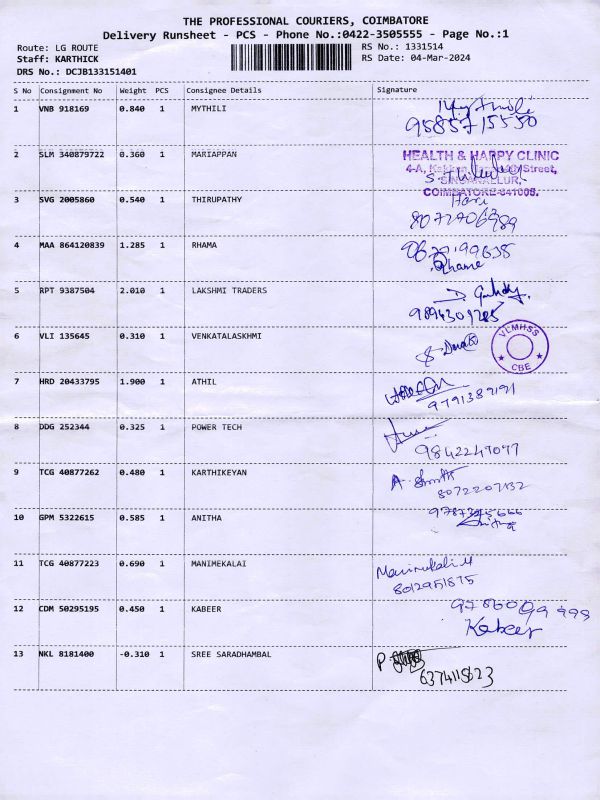 THE PROFESSIONAL COURIERS, COIMBATORE
Delivery Runsheet - PCS - Phone No.:0422-3505555 - Page No.:1
Route: LG ROUTE
RS No.: 1331514
Staff: KARTHICK
RS Date: 04-Mar-2024
DRS No.: DCJB133151401
S No Consignment No Weight PCS Consignee Details Signature
1 VNB 918169 0.840 1 MYTHILI
9585715550
2 SLM 340879722 0.360 1 MARIAPPAN
HEALTH & HAPPY CLINIC
4-A, Street,
SINGANALLUR,
COIMBATORE-641005.
3 SVG 2005860 0.540 1 THIRUPATHY Hari
4 MAA 864120839 1.285 1 RHAMA
Rhame
5 RPT 9387504 2.010 1 LAKSHMI TRADERS
9894309285
6 VLI 135645 0.310 1 VENKATALASKHMI
VLMHSS
CBE
7 HRD 20433795 1.900 1 ATHIL
9791389191
8 DDG 252344 0.325 1 POWER TECH
9842247077
9 TCG 40877262 0.480 1 KARTHIKEYAN
8072207132
10 GPM 5322615 0.585 1 ANITHA
Anitha
11 TCG 40877223 0.690 1 MANIMEKALAI
Manimekalai M
8012951875
12 CDM 50295195 0.450 1 KABEER 9786099999
Kabeer
13 NKL 8181400 -0.310 1 SREE SARADHAMBAL P
6374115623